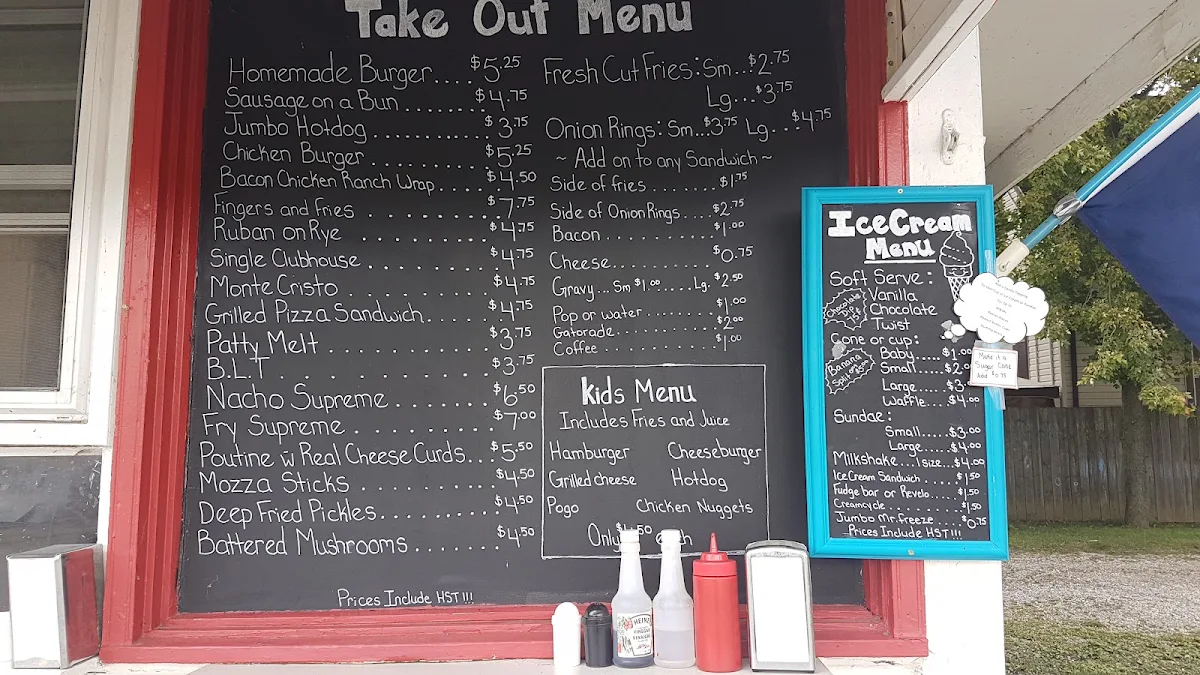 Take Out Menu
Homemade Burger....$5.25
Sausage on a Bun.......$4.75
Jumbo Hotdog...........$3.75
Chicken Burger..........$5.25
Bacon Chicken Ranch Wrap.....$4.50
Fingers and Fries..........$7.75
Ruban on Rye..........$4.75
Single Clubhouse..........$4.75
Monte Cristo..........$4.75
Grilled Pizza Sandwich.....$4.75
Patty Melt..........$3.75
B.L.T..........$3.75
Nacho Supreme.......$6.50
Fry Supreme..........$7.00
Poutine w Real Cheese Curds...$5.50
Mozza Sticks..........$4.50
Deep Fried Pickles.......$4.50
Battered Mushrooms.......$4.50
Prices Include HST!!!
Fresh Cut Fries: Sm...$2.75
Lg...$3.75
Onion Rings: Sm...$3.75 Lg...$4.75
~ Add on to any Sandwich ~
Side of fries.......$1.75
Side of Onion Rings....$2.75
Bacon..........$1.00
Cheese..........$0.75
Gravy...Sm $1.00.....Lg.$2.50
Pop or water..........$1.00
Gatorade..........$2.00
Coffee..........$1.00
Kids Menu
Includes Fries and Juice
Hamburger Cheeseburger
Grilled cheese Hotdog
Pogo Chicken Nuggets
Only
Ice Cream
Menu
Soft Serve:
Vanilla
Chocolate
Twist
Chocolate
Dip
Cone or cup:
Baby.....$1.00
Small.....$2.0
Large....$3.
Waffle....$4.00
Banana
Split
Sundae:
Small.....$3.00
Large....$4.00
Milkshake...1 size...$4.00
Ice Cream Sandwich.....$1.50
Fudge bar or Revelo.....$1.50
Creamcycle..........$1.50
Jumbo Mr. Freeze.....$0.75
Prices Include HST!!!
Make it a
Sugar Cone
Add $0.75
HEINZ